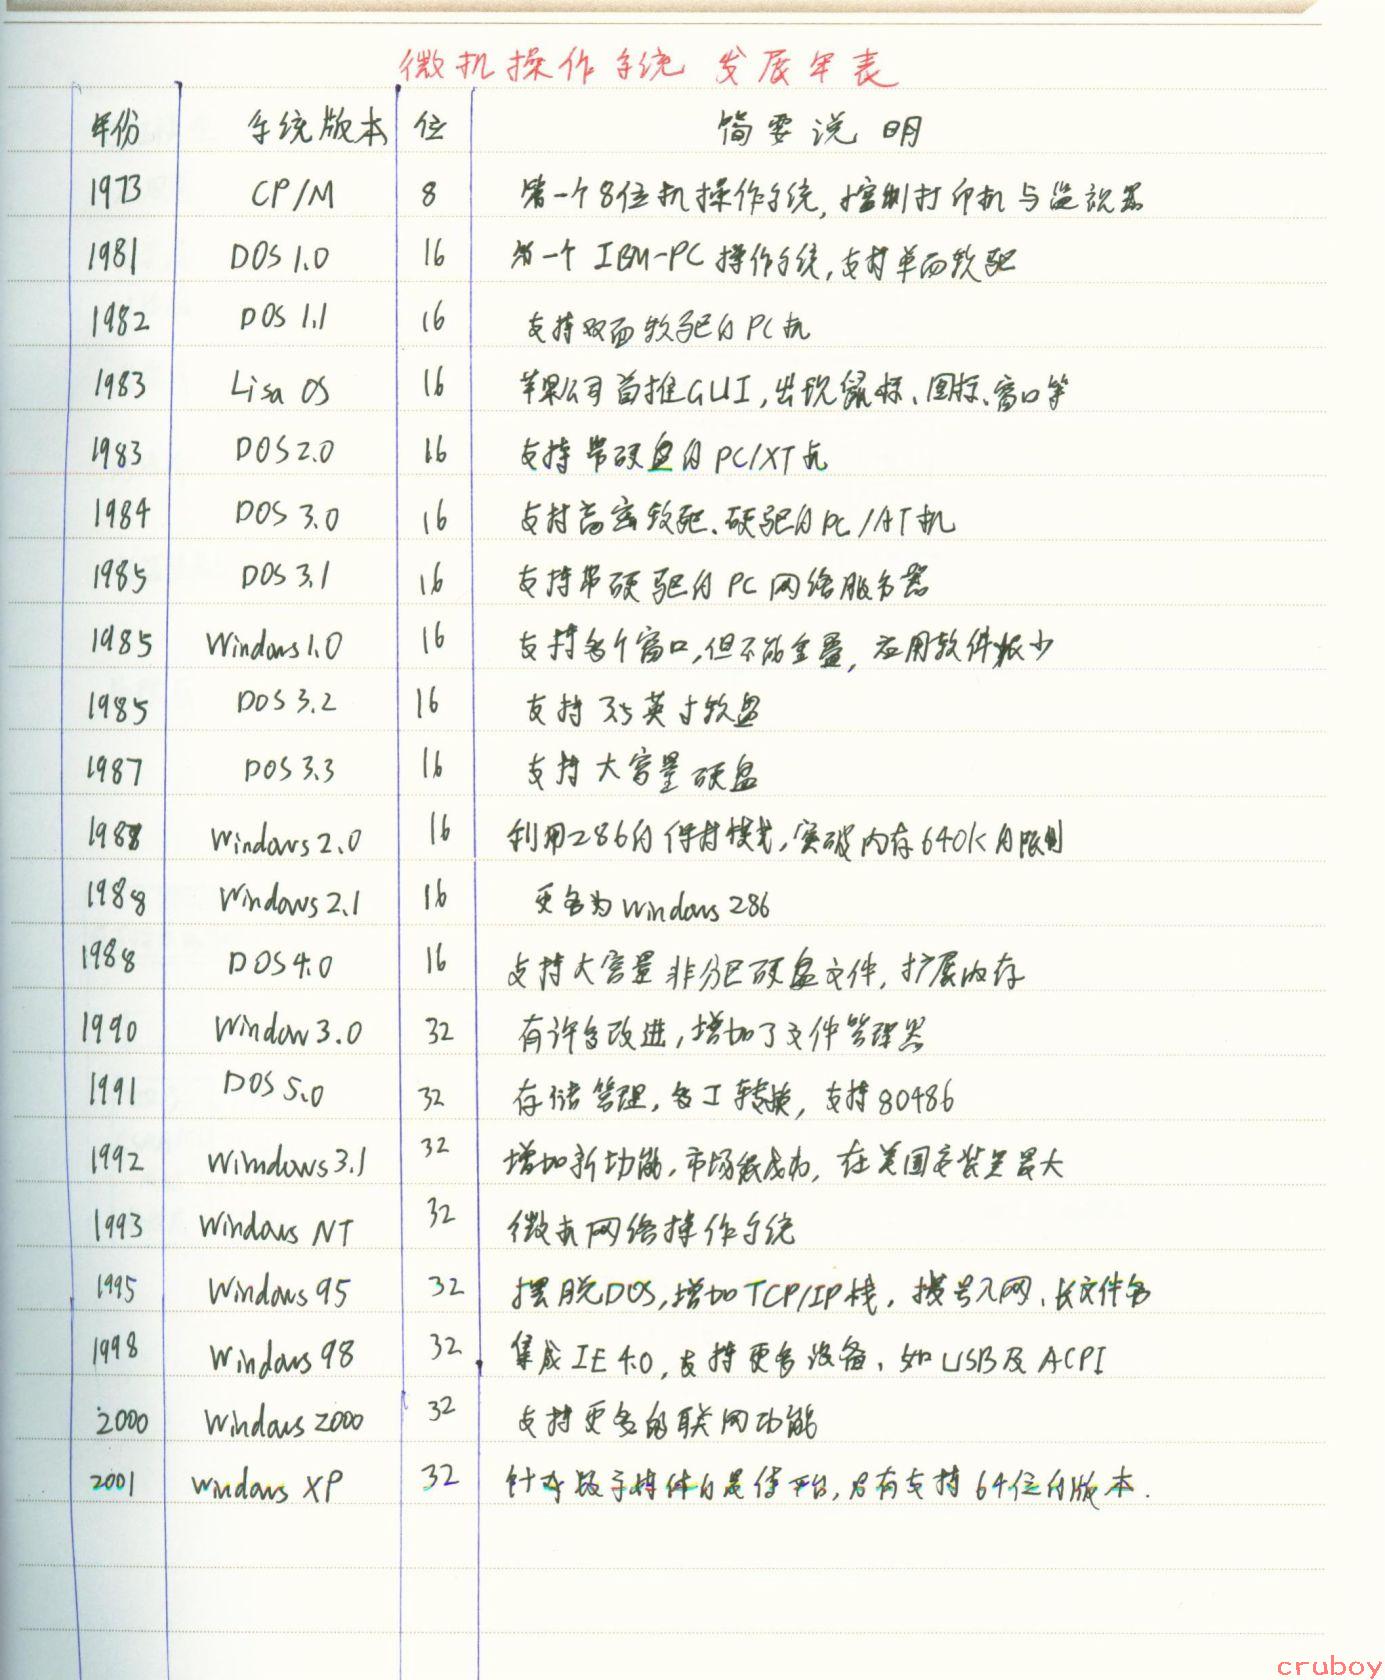 微机操作系统 发展年表
年份 系统版本 位 简要说明
1973 CP/M 8 第一个8位机操作系统, 控制打印机与监视器
1981 DOS 1.0 16 第一个 IBM-PC 操作系统, 支持单面软驱
1982 DOS 1.1 16 支持双面软驱的PC机
1983 Lisa OS 16 苹果公司首推GUI, 出现鼠标、图标、窗口等
1983 DOS 2.0 16 支持带硬盘的PC/XT机
1984 DOS 3.0 16 支持高密软驱、硬驱的PC/AT机
1985 DOS 3.1 16 支持带硬驱的PC网络服务器
1985 Windows 1.0 16 支持多个窗口, 但不能重叠, 应用软件很少
1985 DOS 3.2 16 支持3.5英寸软盘
1987 DOS 3.3 16 支持大容量硬盘
1988 Windows 2.0 16 利用286的保护模式, 突破内存640K的限制
1988 Windows 2.1 16 更名为Windows 286
1988 DOS 4.0 16 支持大容量非分区硬盘文件, 扩展内存
1990 Window 3.0 32 有许多改进, 增加了文件管理器
1991 DOS 5.0 32 存储管理, 多工转换, 支持80486
1992 Windows 3.1 32 增加新功能, 市场很成功, 在美国安装量最大
1993 Windows NT 32 微机网络操作系统
1995 Windows 95 32 摆脱DOS, 增加TCP/IP栈, 拨号入网、长文件名
1998 Windows 98 32 集成IE 4.0, 支持更多设备、如USB及ACPI
2000 Windows 2000 32 支持更多的联网功能
2001 Windows XP 32 针对数字媒体的最佳平台, 另有支持64位的版本.
cruboy